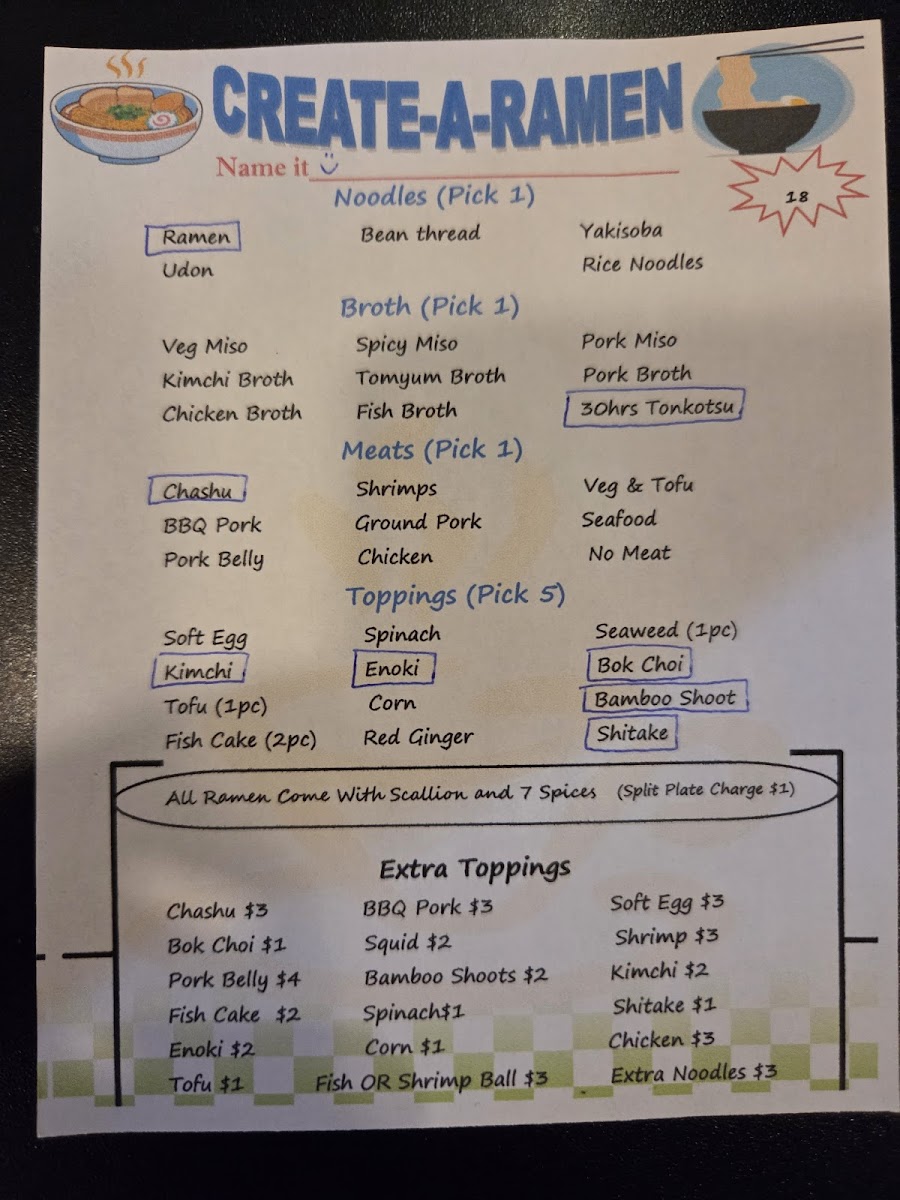 CREATE-A-RAMEN
Name it
18
Noodles (Pick 1)
Ramen Bean thread Yakisoba
Udon Rice Noodles
Broth (Pick 1)
Veg Miso Spicy Miso Pork Miso
Kimchi Broth Tomyum Broth Pork Broth
Chicken Broth Fish Broth 30hrs Tonkotsu
Meats (Pick 1)
Chashu Shrimps Veg & Tofu
BBQ Pork Ground Pork Seafood
Pork Belly Chicken No Meat
Toppings (Pick 5)
Soft Egg Spinach Seaweed (1pc)
Kimchi Enoki Bok Choi
Tofu (1pc) Corn Bamboo Shoot
Fish Cake (2pc) Red Ginger Shitake
All Ramen Come With Scallion and 7 Spices (Split Plate Charge $1)
Extra Toppings
Chashu $3 BBQ Pork $3 Soft Egg $3
Bok Choi $1 Squid $2 Shrimp $3
Pork Belly $4 Bamboo Shoots $2 Kimchi $2
Fish Cake $2 Spinach$1 Shitake $1
Enoki $2 Corn $1 Chicken $3
Tofu $1 Fish OR Shrimp Ball $3 Extra Noodles $3